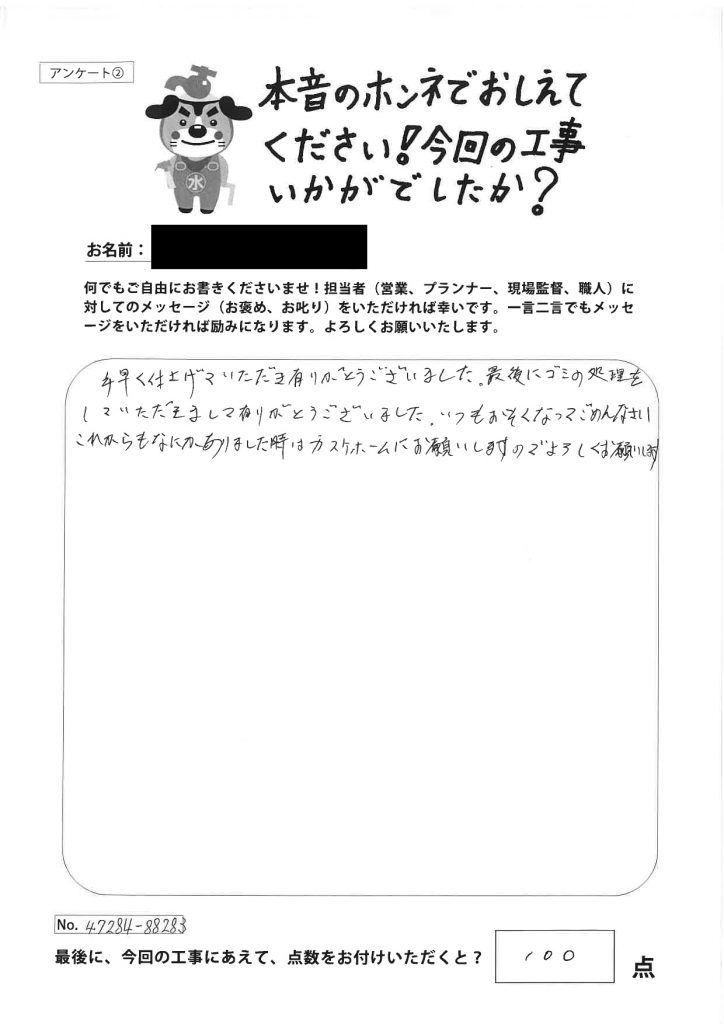 アンケート②
本音のホンネでおしえて
ください!今回の工事
いかがでしたか?
水
お名前:
何でもご自由にお書きくださいませ!担当者(営業、プランナー、現場監督、職人)に
対してのメッセージ(お褒め、お叱り)をいただければ幸いです。一言二言でもメッセ
ージをいただければ励みになります。よろしくお願いいたします。
手早く仕上げていただき有りがとうございました。最後にゴミの処理を
していただきまして有りがとうございました。いつもおそくなってごめんなさい
これからもなにかありました時はカスケホームにお願いしますのでよろしくお願いします
No. 47284-88283
最後に、今回の工事にあえて、点数をお付けいただくと?
100
点